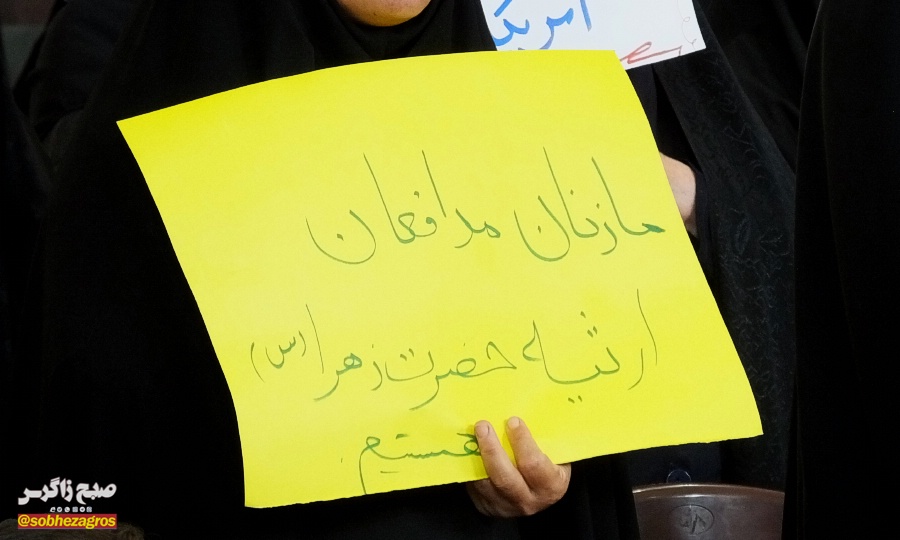 آمریک
ما زنان مدافعان
ارثیه حضرت زهرا (س)
هستیم.
صبح زاگرس
@sobhezagros